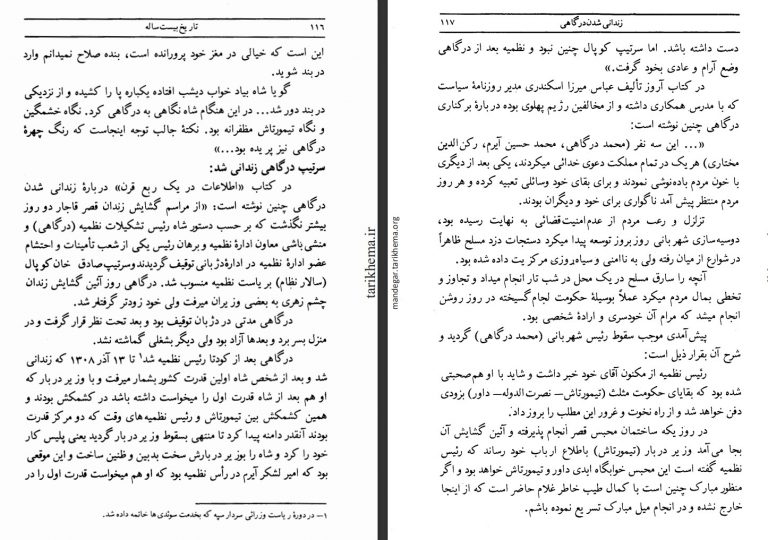 ۱۱۶
تاریخ بیست ساله
این است که خیالی در مغز خود پرورانده است، بنده صلاح نمیدانم وارد
در بند شوید.
گویا شاه بیاد خواب دیشب افتاده یکباره پا را کشیده و از نزدیکی
در بند دور شد... در این هنگام شاه نگاهی به درگاهی کرد. نگاه خشمگین
و نگاه تیمورتاش مظفرانه بود. نکتهٔ جالب توجه اینجاست که رنگ چهرهٔ
درگاهی نیز پریده بود...»
سرتیپ درگاهی زندانی شد:
در کتاب «اطلاعات در یک ربع قرن» دربارهٔ زندانی شدن
درگاهی چنین نوشته است: «از مراسم گشایش زندان قصر قاجار دو روز
بیشتر نگذشت که بر حسب دستور شاه رئیس تشکیلات نظمیه (درگاهی) و
منشی باشی معاون ادارهٔ نظمیه و برهان رئیس یکی از شعب تأمینات و احتشام
عضو ادارهٔ نظمیه در ادارهٔ دژبانی توقیف گردیدند و سرتیپ صادق خان کوپال
(سالار نظام) بر یاست نظمیه منسوب شد. درگاهی روز آئین گشایش زندان
چشم زهری به بعضی وزیران میرفت ولی خود زودتر گرفتار شد.
درگاهی مدتی در دژبان توقیف بود و بعد تحت نظر قرار گرفت و در
منزل بسر برد و بعدها آزاد بود ولی دیگر بشغلی گماشته نشد.
درگاهی بعد از کودتا رئیس نظمیه شد۱ تا ۱۳ آذر ۱۳۰۸ که زندانی
شد و بعد از شخص شاه اولین قدرت کشور بشمار میرفت و با وزیر دربار که
او هم بعد از شاه قدرت اول را میخواست داشته باشد در کشمکش بودند و
همین کشمکش بین تیمورتاش و رئیس نظمیه های وقت که دو مرکز قدرت
بودند آنقدر دامنه پیدا کرد تا منتهی بسقوط وزیر دربار گردید یعنی پلیس کار
خود را کرد و شاه را بوزیر دربارش سخت بدبین و ظنین ساخت و این موقعی
بود که امیر لشکر آیرم در رأس نظمیه بود که او هم میخواست قدرت اول را در
۱– در دورهٔ ریاست وزرائی سردار سپه که بخدمت سوئدی ها خاتمه داده شد.
tarikhema.ir
mandegar.tarikhema.org
زندانی شدن درگاهی
۱۱۷
دست داشته باشد. اما سرتیپ کوپال چنین نبود و نظمیه بعد از درگاهی
وضع آرام و عادی بخود گرفت.»
در کتاب آرزو تألیف عباس میرزا اسکندری مدیر روزنامهٔ سیاست
که با مدرس همکاری داشته و از مخالفین رژیم پهلوی بوده دربارهٔ برکناری
درگاهی چنین نوشته است:
«... این سه نفر (محمد درگاهی، محمد حسین آیرم، رکن الدین
مختاری) هر یک در تمام مملکت دعوی خدائی میکردند، یکی بعد از دیگری
با خون مردم باده نوشی نمودند و برای بقای خود وسائلی تعبیه کرده و هر روز
مردم منتظر پیش آمد ناگواری برای خود و دیگران بودند.
تزلزل و رعب مردم از عدم امنیت قضائی به نهایت رسیده بود،
دوسیه سازی شهربانی روز بروز توسعه پیدا میکرد دستجات دزد مسلح ظاهراً
در شوارع از میان رفته ولی به ناامنی و سیاه روزی مرکزیت داده شده بود.
آنچه را سارق مسلح در یک محل در شب تار انجام میداد و تجاوز و
تخطی بمال مردم میکرد عملاً بوسیلهٔ حکومت لجام گسیخته در روز روشن
انجام میشد که مرام آن خودسری و ارادهٔ شخصی بود.
پیش آمدی موجب سقوط رئیس شهربانی (محمد درگاهی) گردید و
شرح آن بقرار ذیل است:
رئیس نظمیه از مکنون آقای خود خبر داشت و شاید با او هم صحبتی
شده بود که بقایای حکومت مثلث (تیمورتاش– نصرت الدوله– داور) بزودی
دفن خواهد شد و از راه نخوت و غرور این مطلب را بروز داد.
در روزیکه ساختمان محبس قصر انجام پذیرفته و آئین گشایش آن
بجا می آمد وزیر دربار (تیمورتاش) باطلاع ارباب خود رساند که رئیس
نظمیه گفته است این محبس خوابگاه ابدی داور و تیمورتاش خواهد بود و اگر
منظور مبارک چنین است با کمال طیب خاطر غلام حاضر است که از اینجا
خارج نشده و در انجام میل مبارک تسریع نموده باشم.